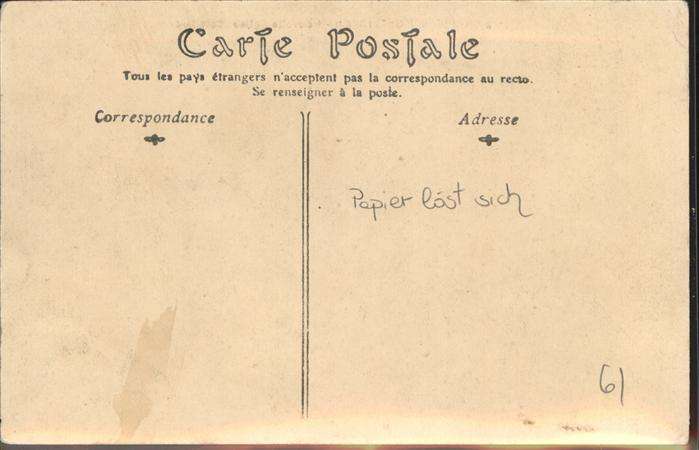 Carte Postale
Tous les pays étrangers n'acceptent pas la correspondance au recto.
Se renseigner à la poste.
Correspondance
Adresse
Papier löst sich
61